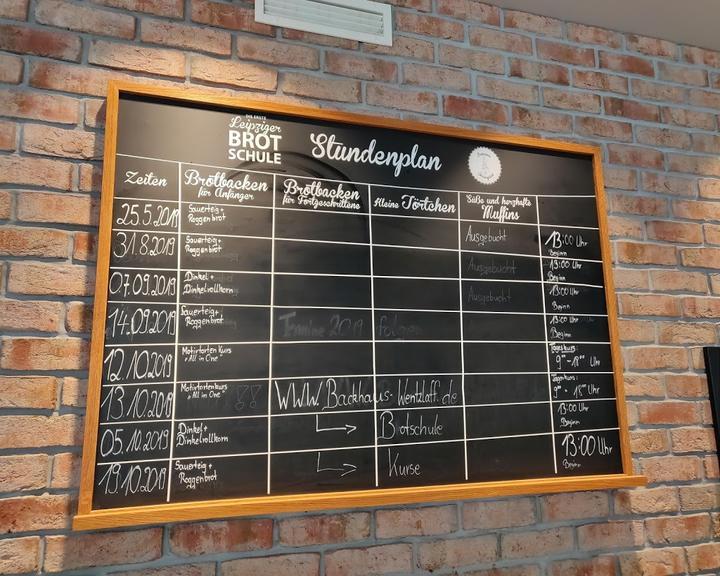 DIE ERSTE
Leipziger
BROT
SCHULE
Stundenplan
Zeiten
Brotbacken
für Anfänger
Brotbacken
für Fortgeschrittene
Kleine Törtchen
Süße und herzhafte
Muffins
25.5.2019
Sauerteig +
Roggenbrot
Ausgebucht
13:00 Uhr
Beginn
31.8.2019
Sauerteig +
Roggenbrot
Ausgebucht
13:00 Uhr
Beginn
07.09.2019
Dinkel +
Dinkelvollkorn
Ausgebucht
13:00 Uhr
Beginn
14.09.2019
Sauerteig +
Roggenbrot
Termine 2019 folgen
13:00 Uhr
Beginn
12.10.2019
Motivtorten Kurs
"All in One"
Tageskurs:
9⁰⁰ - 18⁰⁰ Uhr
13.10.2019
Motivtortenkurs
"All in One" !!
WWW.Backhaus-Wentzlaff.de
Tageskurs:
9⁰⁰ - 18⁰⁰ Uhr
05.10.2019
Dinkel +
Dinkelvollkorn
Brotschule
13:00 Uhr
Beginn
19.10.2019
Sauerteig +
Roggenbrot
Kurse
13:00 Uhr
Beginn